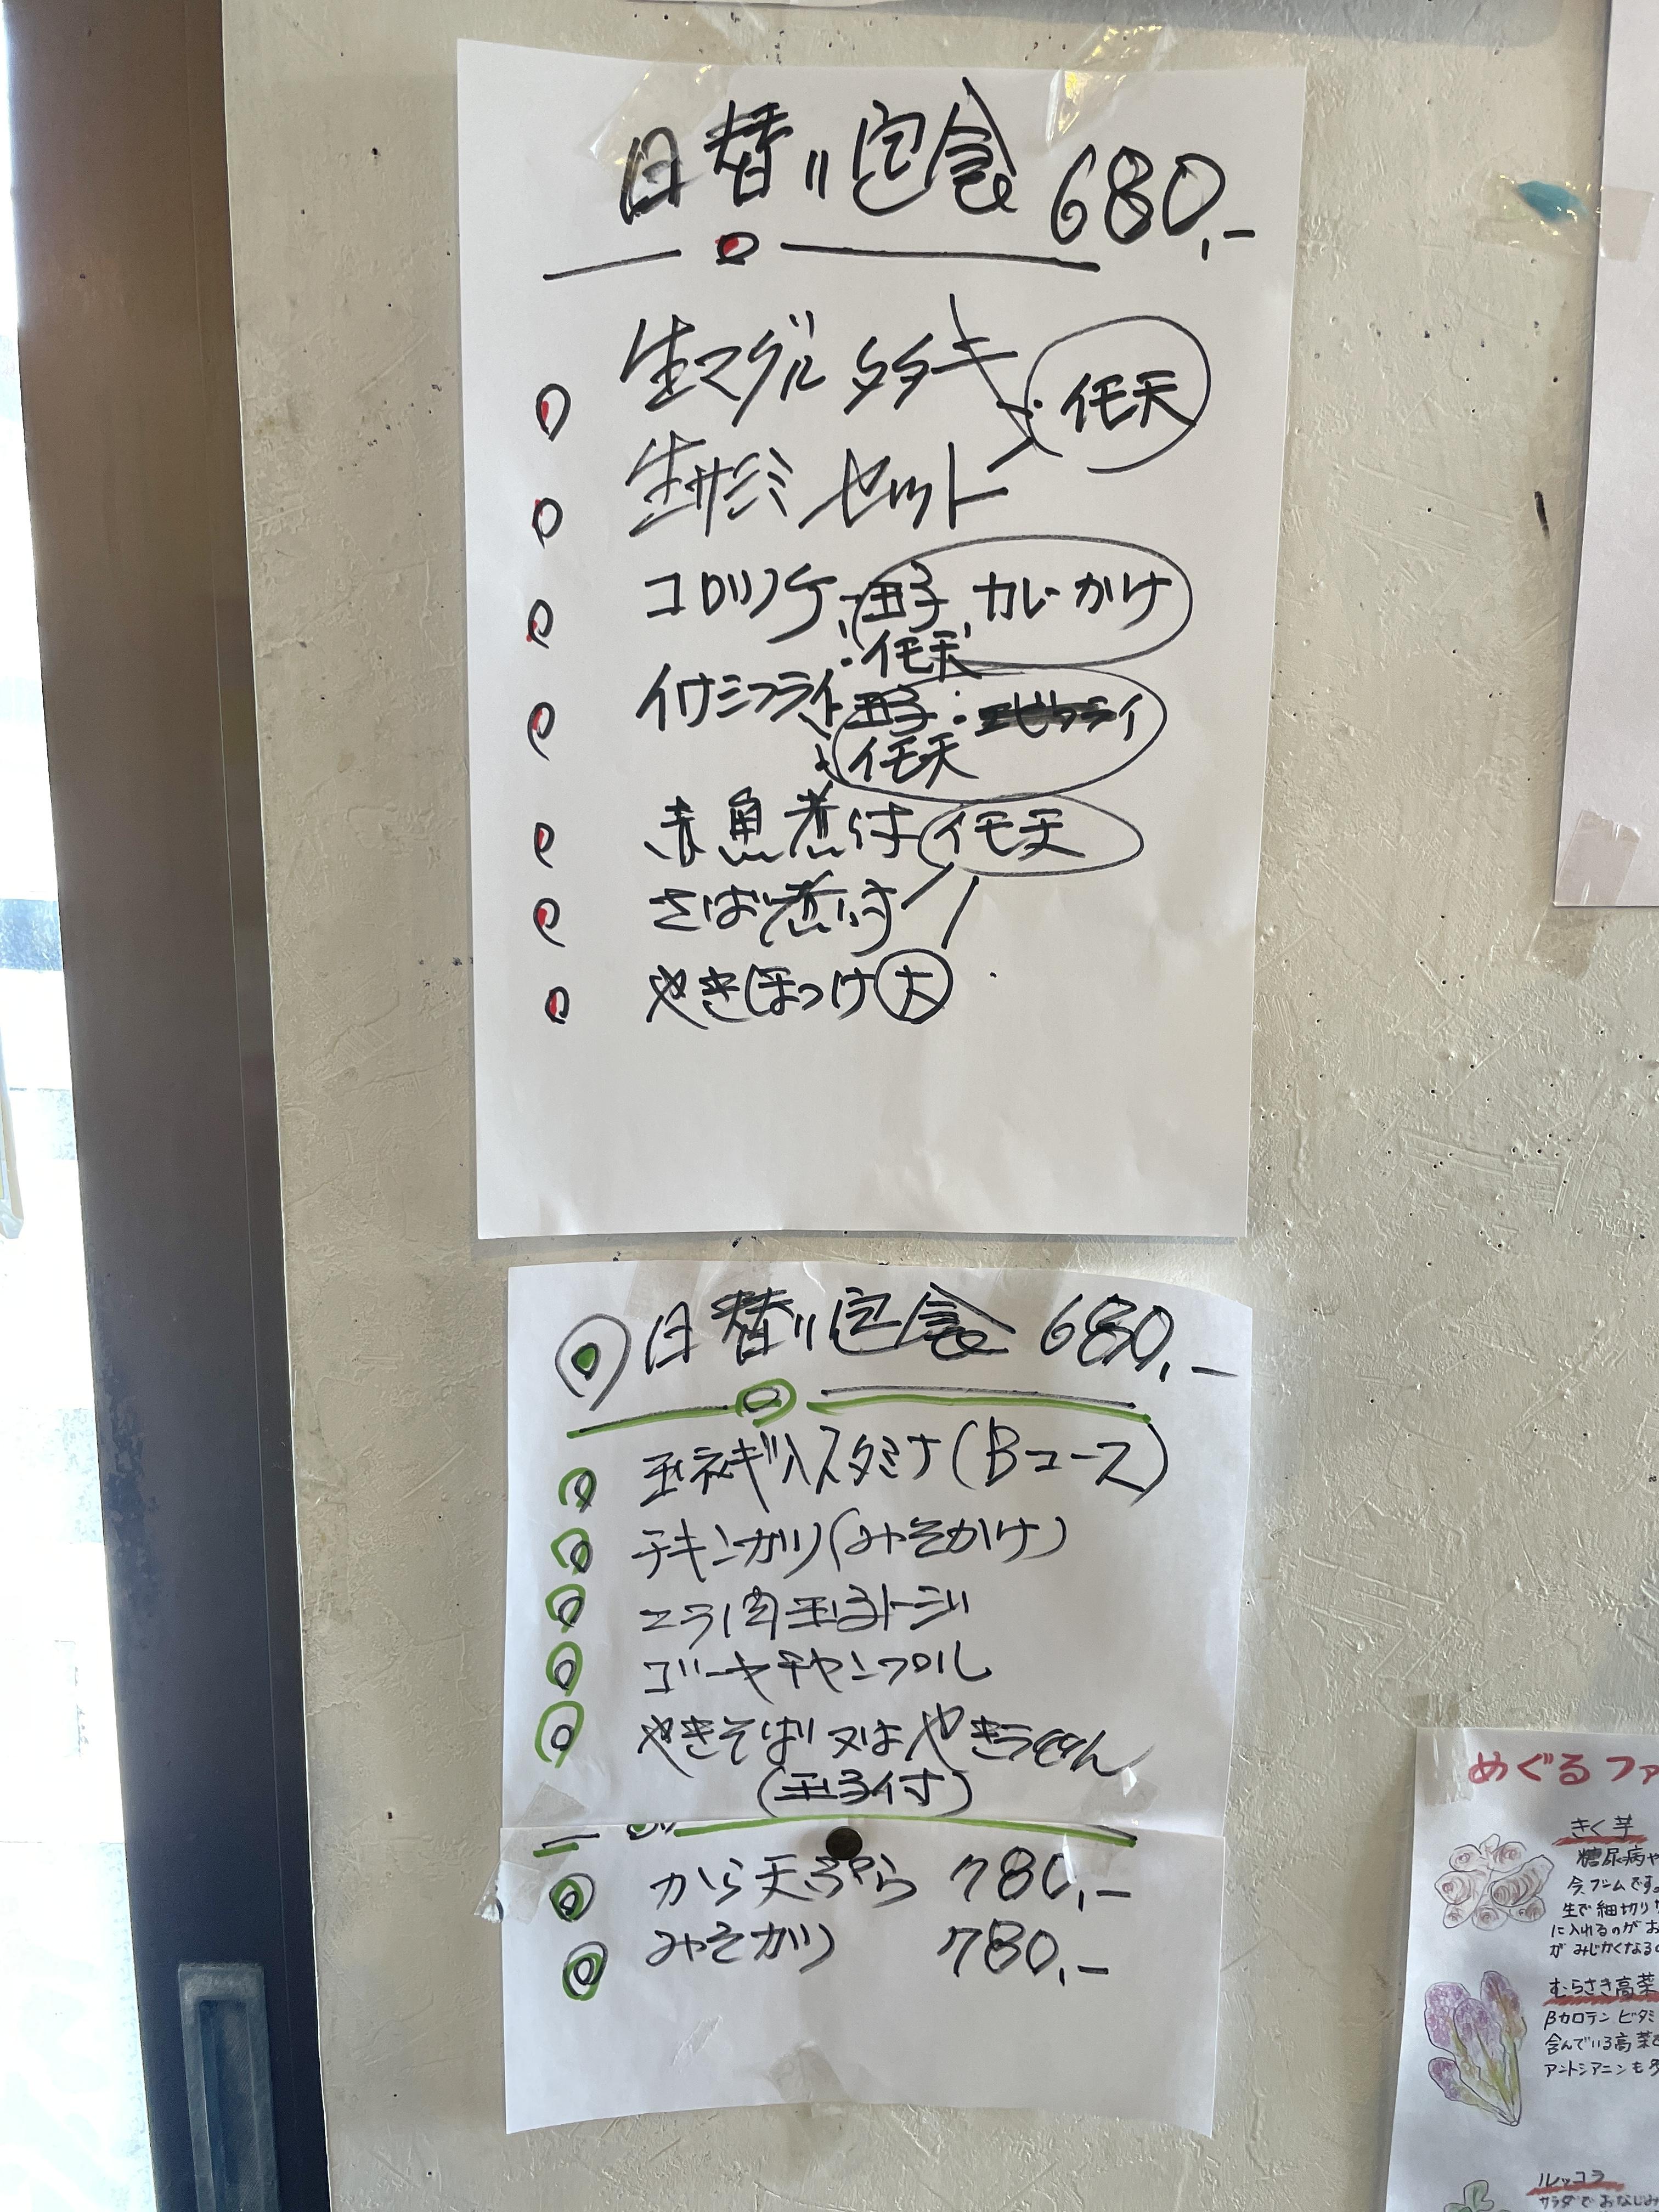 日替り定食 680,-
生マグロ タタキ
イモ天
生サシミ セット
コロッケ、玉子、カレーかけ
・イモ天
イワシフライ、玉子・
イモ天
赤魚煮付 イモ天
さば煮付
やきほっけ 大
日替り定食 680,-
玉ネギ入スタミナ(Bコース)
チキンカツ(みそかけ)
ニラ肉玉子トージ
ゴーヤチャンプル
やきそば 又は やきうどん
(玉子付)
から天ぷら 780,-
みそカツ 780,-
めぐるファ
きく芋
糖尿病や
今ブームです。
生で細切り
に入れるのがお
がみじかくなるの
むらさき高菜
βカロテン ビタミ
含んでいる高菜
アントシアニンも多
ルッコラ
サラダでおなじみ